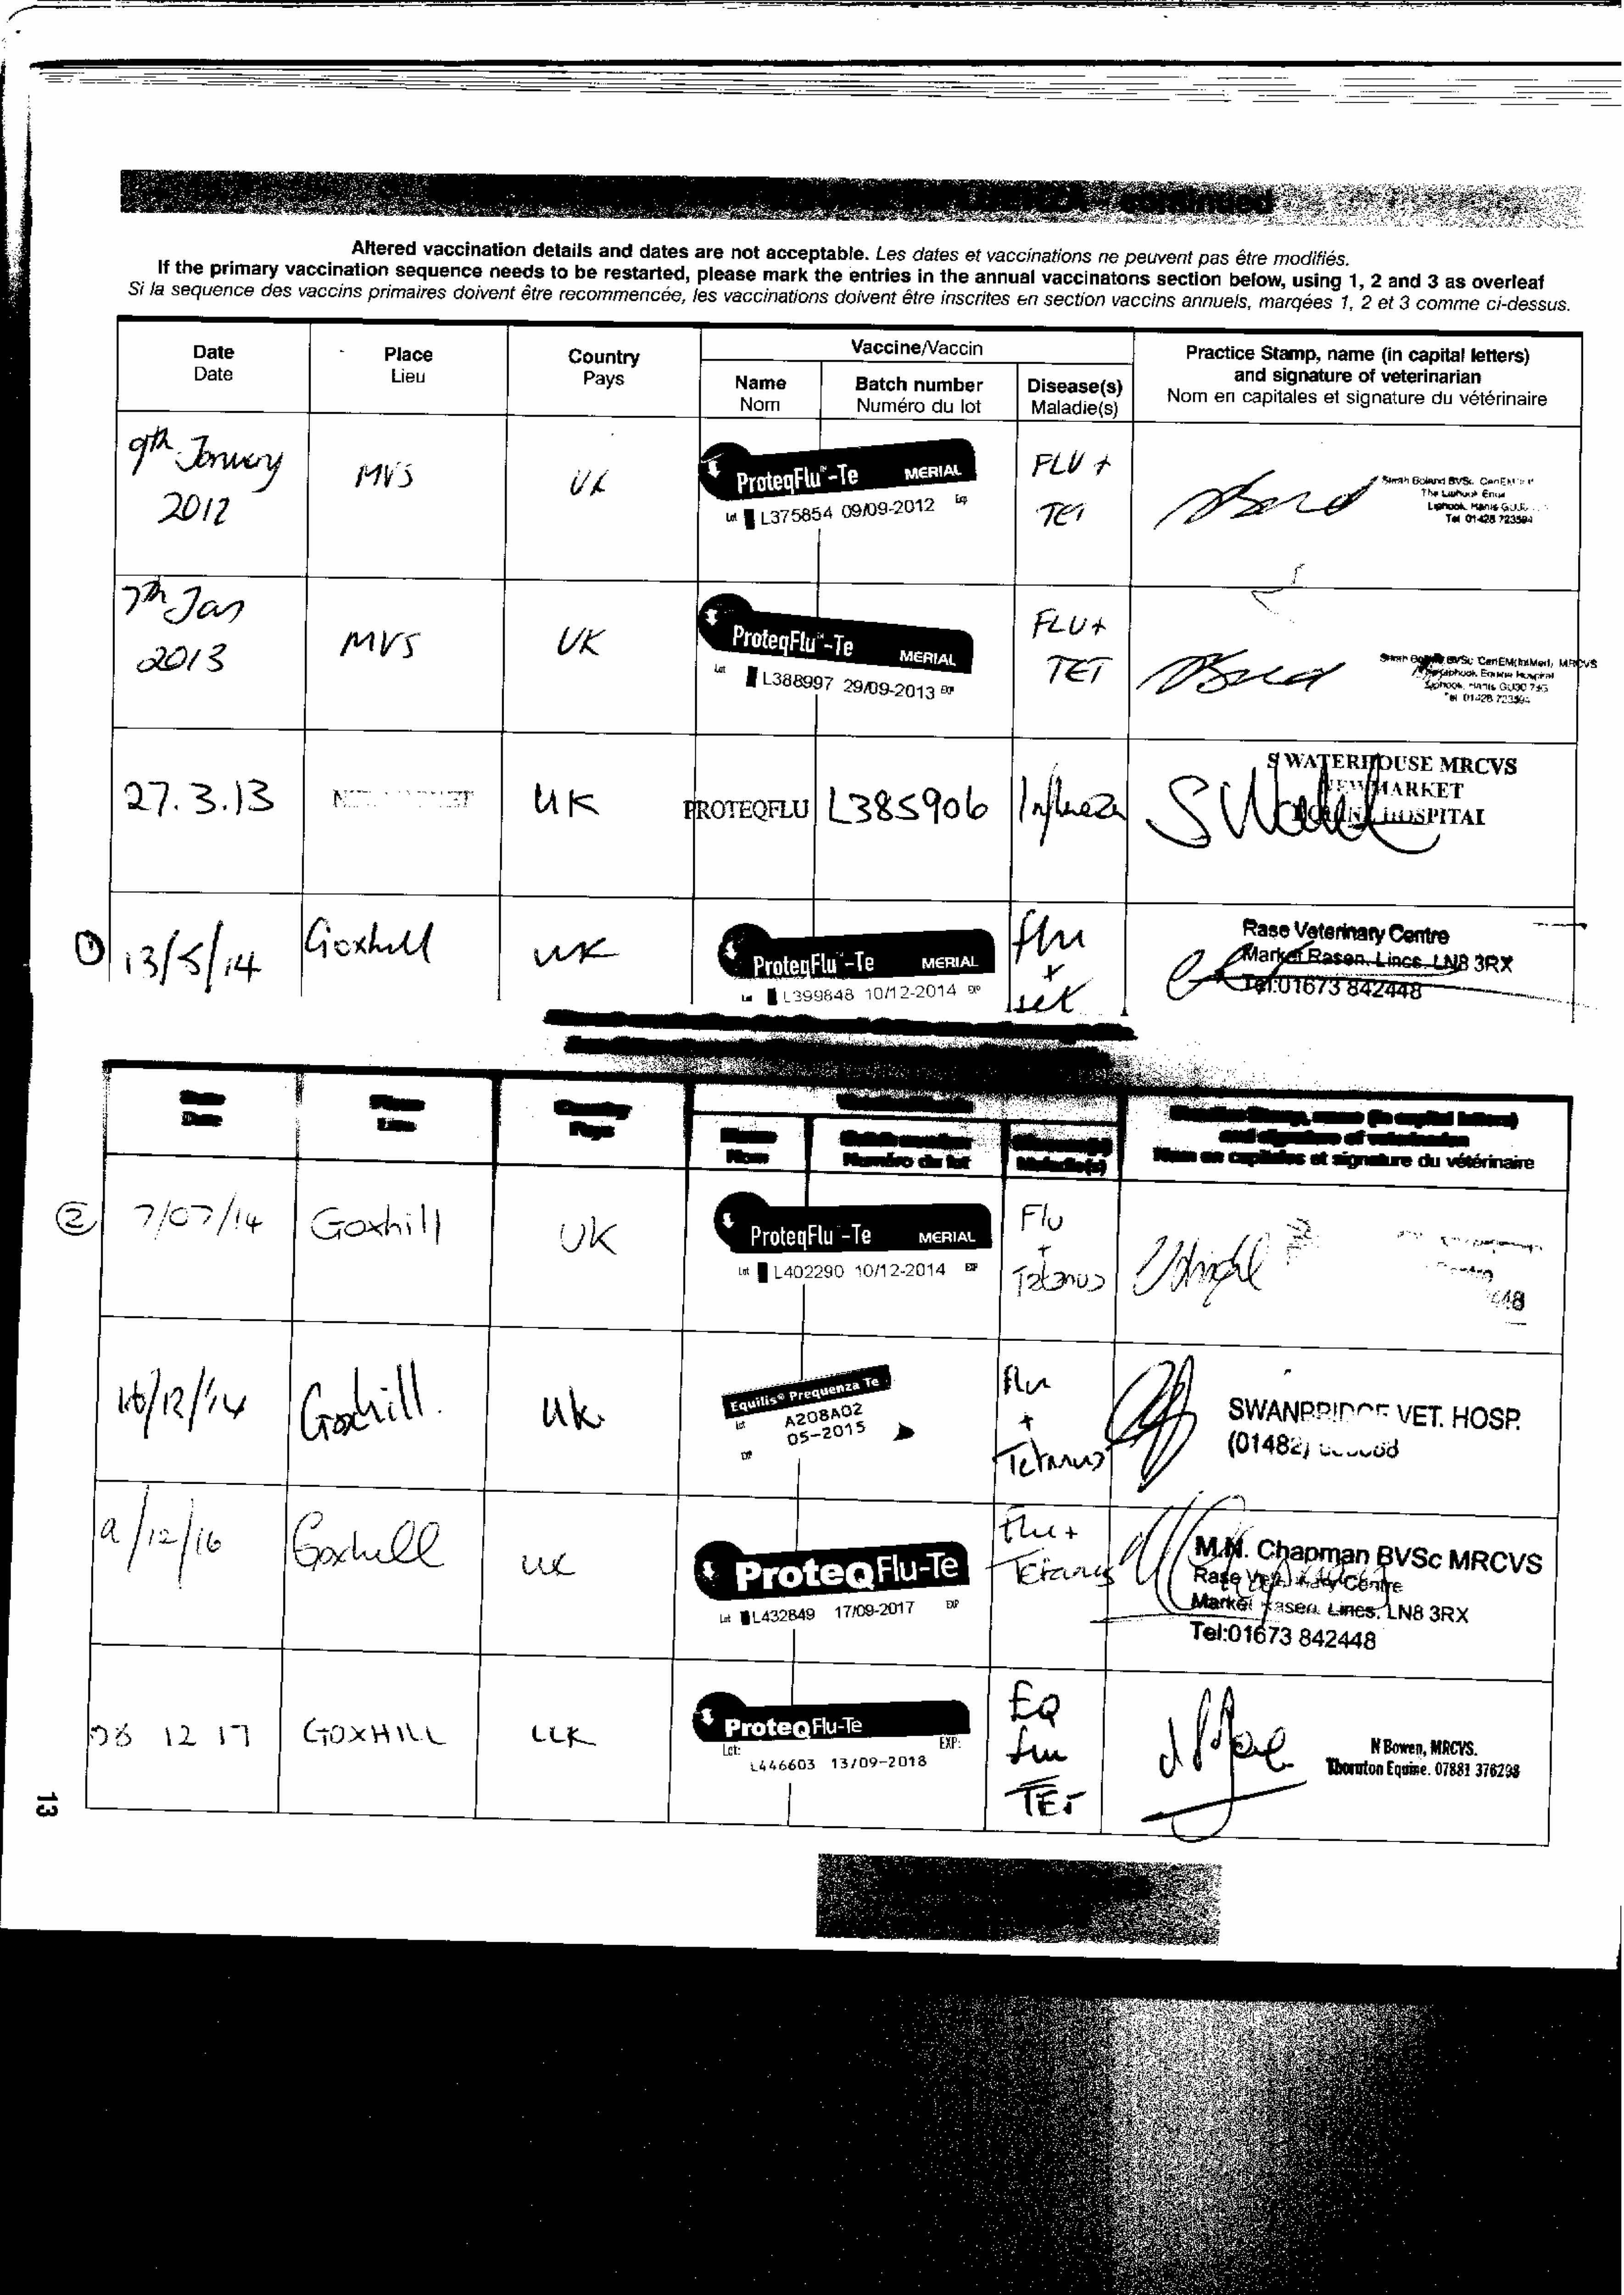 continued
Altered vaccination details and dates are not acceptable. Les dates et vaccinations ne peuvent pas être modifiés.
If the primary vaccination sequence needs to be restarted, please mark the entries in the annual vaccinatons section below, using 1, 2 and 3 as overleaf
Si la sequence des vaccins primaires doivent être recommencée, les vaccinations doivent être inscrites en section vaccins annuels, marqées 1, 2 et 3 comme ci-dessus.
Date
Date
Place
Lieu
Country
Pays
Vaccine/Vaccin
Name
Nom
Batch number
Numéro du lot
Disease(s)
Maladie(s)
Practice Stamp, name (in capital letters)
and signature of veterinarian
Nom en capitales et signature du vétérinaire
9th January
2012
MVS
UK
ProteqFlu™-Te MERIAL
Lot L375854 09/09-2012 Exp
FLU +
TET
Tel 01428 723594
7th Jan
2013
MVS
UK
ProteqFlu™-Te MERIAL
Lot L388997 29/09-2013 EXP
FLU+
TET
27.3.13
UK
PROTEQFLU
L385906
Influenza
S WATERHOUSE MRCVS
NEWMARKET
HOSPITAL
① 13/5/14
Goxhill
UK
ProteqFlu™-Te MERIAL
Lot L399848 10/12-2014 EXP
flu
+
tet
Rase Veterinary Centre
Market Rasen. Lincs. LN8 3RX
Tel:01673 842448
Date
Date
Place
Lieu
Country
Pays
Name
Nom
Batch number
Numéro du lot
Disease(s)
Maladie(s)
Practice Stamp, name (in capital letters)
and signature of veterinarian
Nom en capitales et signature du vétérinaire
② 7/07/14
Goxhill
UK
ProteqFlu™-Te MERIAL
Lot L402290 10/12-2014 EXP
Flu
+
Tetanus
/12/14
Goxhill.
UK
Equilis® Prequenza Te
Lot A208A02
EXP 05-2015
flu
+
Tetanus
SWANBRIDGE VET. HOSP.
(01482)
9/12/16
Goxhill
UK
ProteqFlu-Te
Lot L432849 17/09-2017 EXP
Flu +
Tetanus
M.N. Chapman BVSc MRCVS
Rase Veterinary Centre
Market Rasen. Lincs. LN8 3RX
Tel:01673 842448
12 17
GOXHILL
UK
ProteqFlu-Te
Lot: EXP:
L446603 13/09-2018
EQ
flu
TET
N Bowen, MRCVS.
Thornton Equine. 07881 376298
13